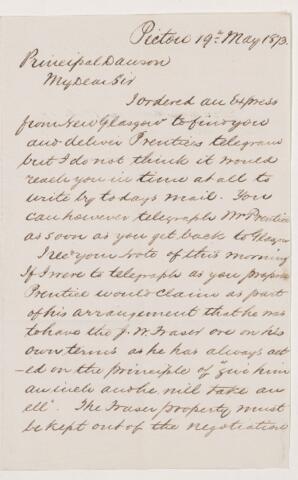 Pictou 19th May 1873.
Principal Dawson
My Dear Sir
I ordered an express
from New Glasgow to find you
and deliver Prentice telegram
but I do not think it would
reach you in time at all to
write by todays mail. You
can however telegraph Mr Prentice
as soon as you get back to Glasgow
I rec'd your note of this morning
If I were to telegraph as you propose
Prentice would claim as part
of his arrangement that he was
to have the J. W. Fraser ore on his
own terms as he has always act
-ed on the principle of give him
an inch and he will take an
ell". The Fraser property must
be kept out of the negotiation